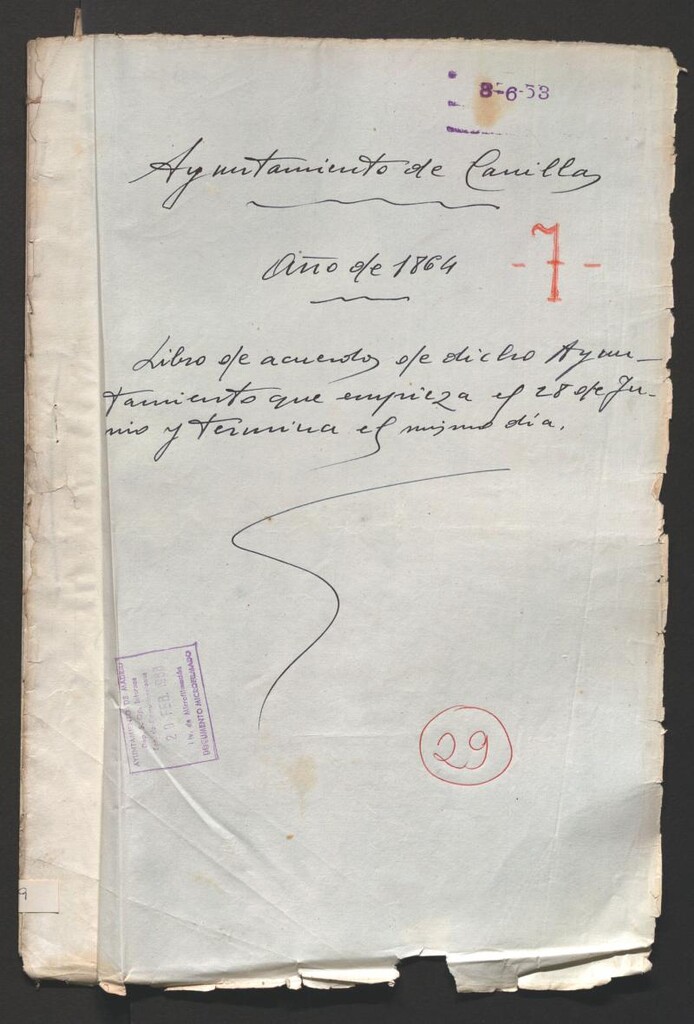 8-6-53
Ayuntamiento de Canillas
Año de 1864
-7-
Libro de acuerdos de dicho Ayun-
tamiento que empieza el 28 de Ju-
nio y termina el mismo día.
AYUNTAMIENTO DE MADRID
20 FEB. 1980
DOCUMENTO MICROFILMADO
29
9